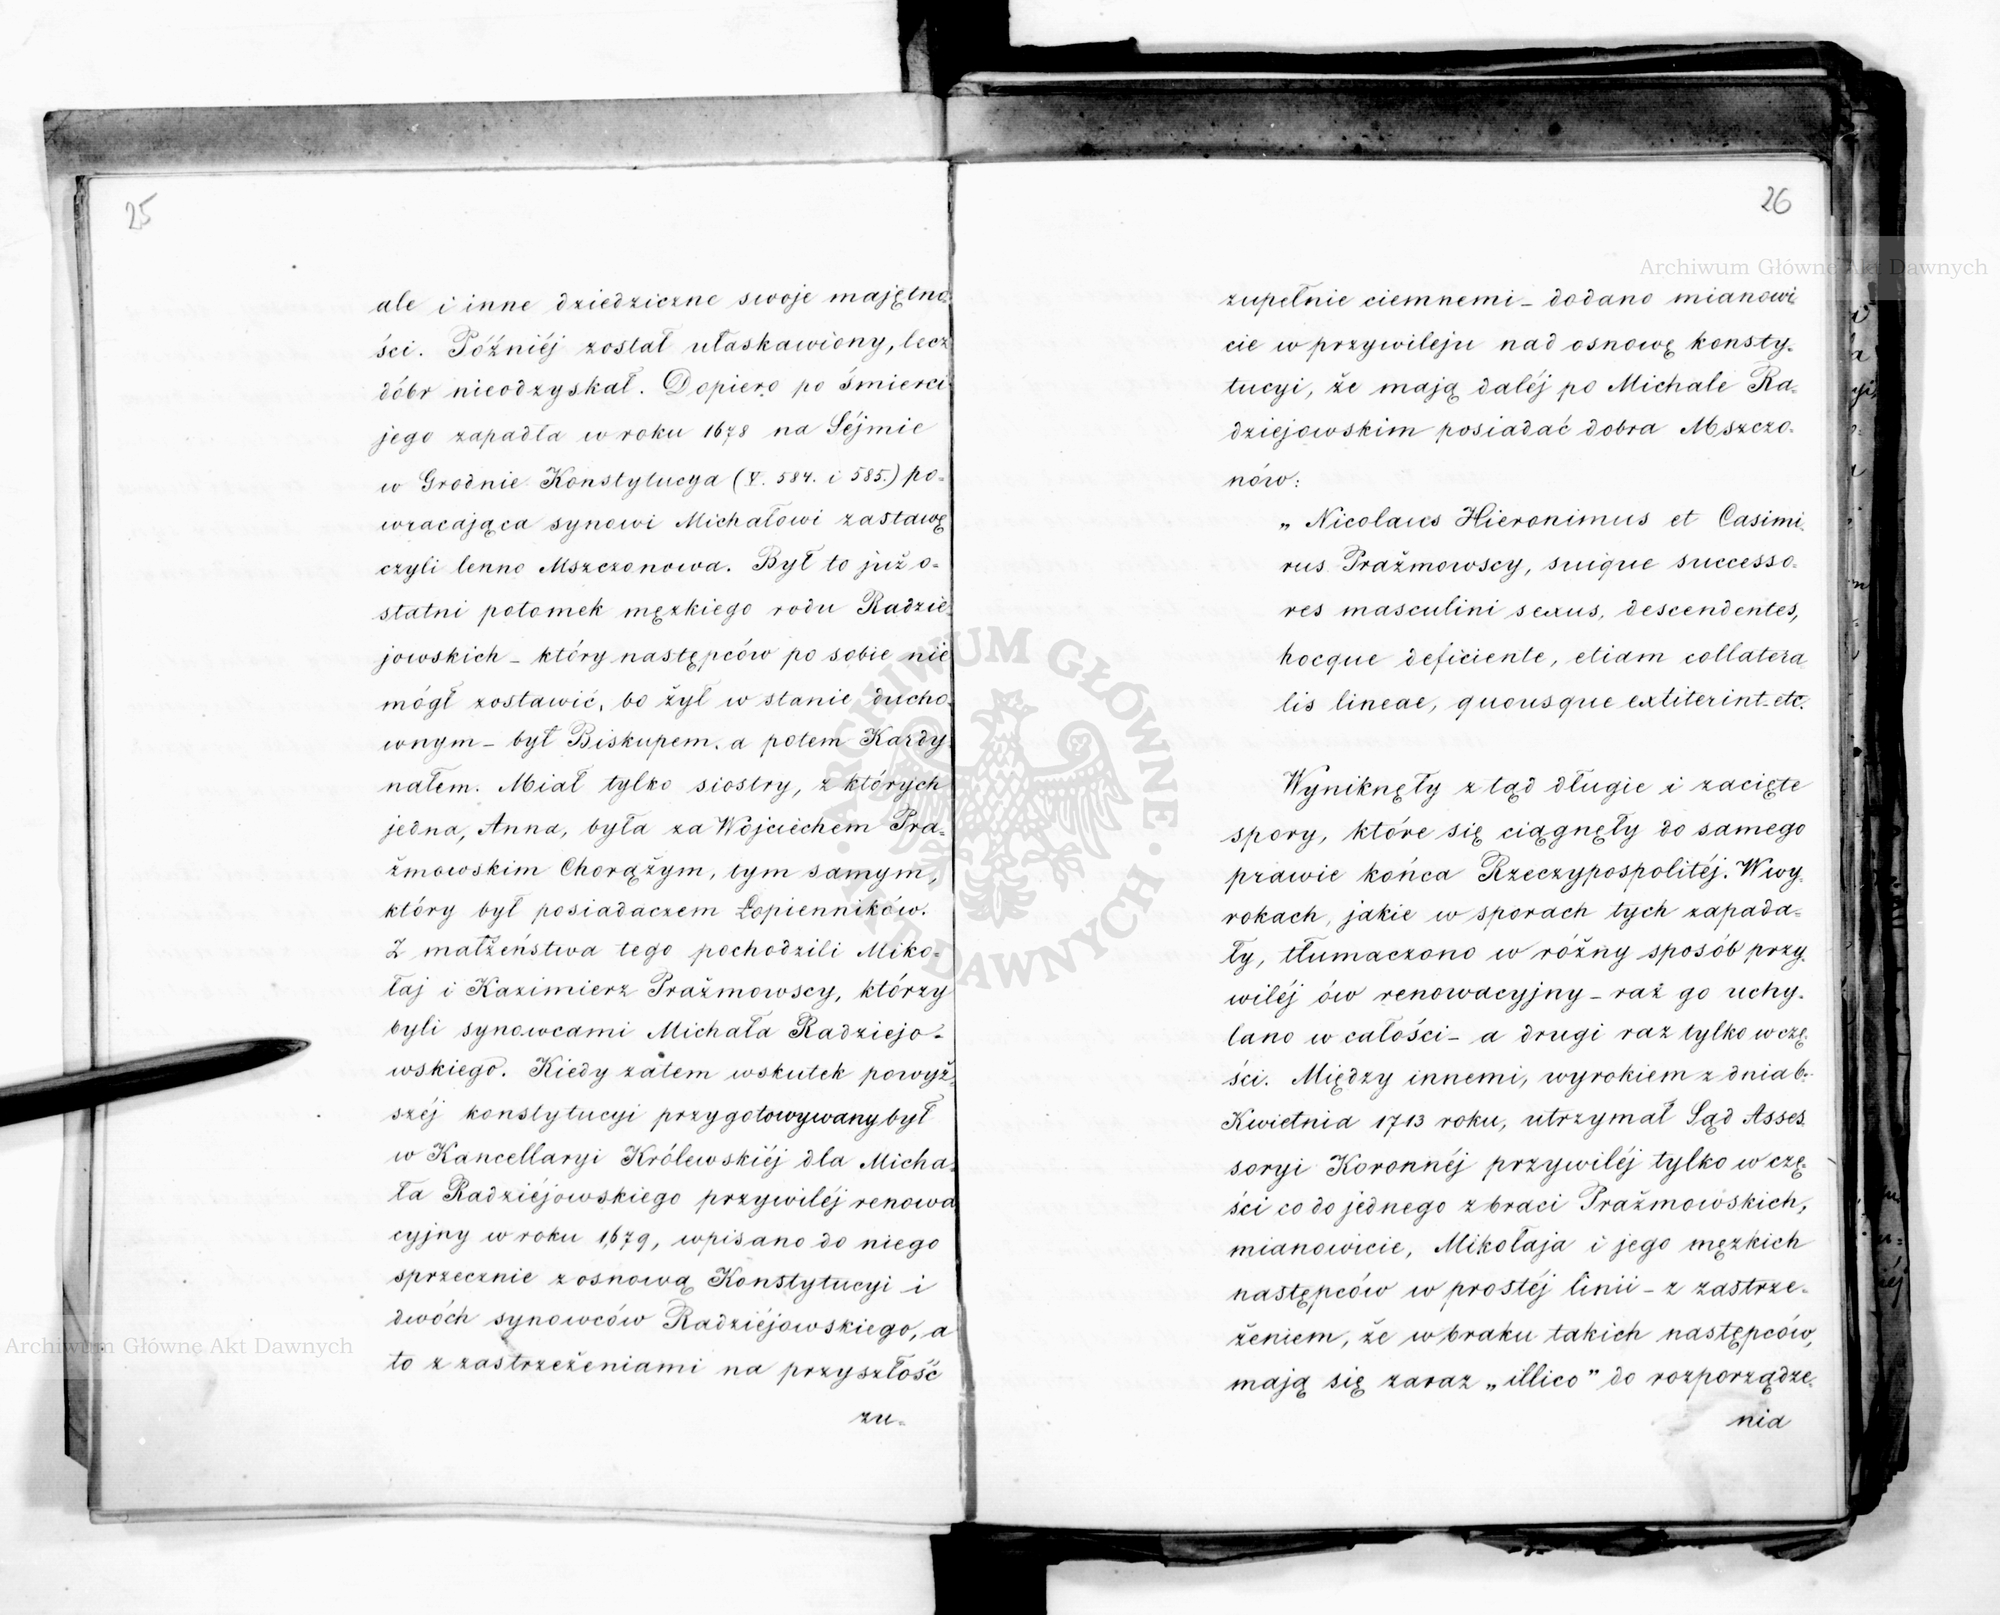 25
ale i inne dziedziczne swoje majętno-
ści. Późniéj został ułaskawiony, lecz
dóbr nieodzyskał. Dopiero po śmierci
jego zapadła w roku 1678 na Séjmie
w Grodnie Konstytucya (V. 584. i 585.) po-
wracająca synowi Michałowi zastawę
czyli lenno Mszczonowa. Był to już o-
statni potomek męzkiego rodu Radzie-
jowskich - który następców po sobie nie
mógł zostawić, bo żył w stanie ducho-
wnym - był Biskupem, a potem Kardy-
nałem. Miał tylko siostry, z których
jedna, Anna, była za Wojciechem Pra-
żmowskim Chorążym, tym samym,
który był posiadaczem Łopienników.
Z małżeństwa tego pochodzili Miko-
łaj i Kazimierz Prażmowscy, którzy
byli synowcami Michała Radziejo-
wskiego. Kiedy zatem wskutek powyż-
széj konstytucyi przygotowywany był
w Kancellaryi Królewskiéj dla Micha-
ła Radziéjowskiego przywiléj renowa
cyjny w roku 1679, wpisano do niego
sprzecznie z osnową Konstytucyi i
dwóch synowców Radziéjowskiego, a
to z zastrzeżeniami na przyszłość
zu-
26
zupełnie ciemnemi - dodano mianowi
cie w przywileju nad osnowę konsty-
tucyi, że mają daléj po Michale Ra-
dziejowskim posiadać dobra Mszczo-
nów:
„Nicolaus Hieronimus et Casimi
rus Prażmowscy, suique successo-
res masculini sexus, descendentes,
hocque deficiente, etiam collatera
lis lineae, quousque extiterint - etc.
Wyniknęły z tąd długie i zacięte
spory, które się ciągnęły do samego
prawie końca Rzeczypospolitéj. W wy-
rokach, jakie w sporach tych zapada-
ły, tłumaczono w różny sposób przy-
wiléj ów renowacyjny - raz go uchy-
lano w całości - a drugi raz tylko w czę-
ści. Między innemi, wyrokiem z dnia 6.
Kwietnia 1713 roku, utrzymał Sąd Asses
soryi Koronnéj przywiléj tylko w czę-
ści co do jednego z braci Prażmowskich,
mianowicie, Mikołaja i jego męzkich
następców w prostéj linii - z zastrze-
żeniem, że w braku takich następców,
mają się zaraz „illico" do rozporządze-
nia
Archiwum Główne Akt Dawnych
Archiwum Główne Akt Dawnych
ARCHIWUM GŁÓWNE · AKT DAWNYCH ·